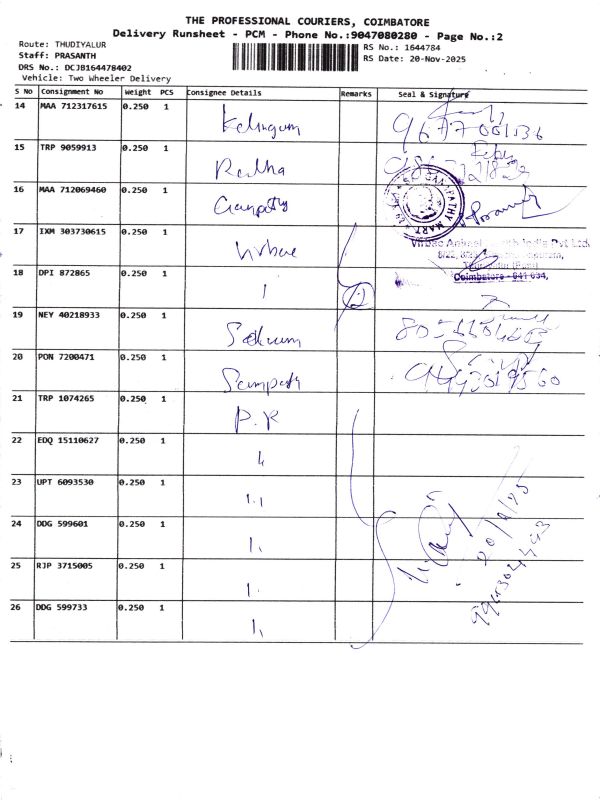 THE PROFESSIONAL COURIERS, COIMBATORE
Delivery Runsheet - PCM - Phone No.:9047080280 - Page No.:2
Route: THUDIYALUR
RS No.: 1644784
Staff: PRASANTH
RS Date: 20-Nov-2025
DRS No.: DCJB164478402
Vehicle: Two Wheeler Delivery
S No Consignment No Weight PCS Consignee Details Remarks Seal & Signature
14 MAA 712317615 0.250 1
15 TRP 9059913 0.250 1 Radha
16 MAA 712069460 0.250 1 Ganpathy
17 IXM 303730615 0.250 1 Virbac
Virbac Animal Health India Pvt Ltd.
Coimbatore - 641 034.
18 DPI 872865 0.250 1 12
19 NEY 40218933 0.250 1
20 PON 7200471 0.250 1 Sampath
21 TRP 1074265 0.250 1 P.K
22 EDQ 15110627 0.250 1
23 UPT 6093530 0.250 1
24 DDG 599601 0.250 1
25 RJP 3715005 0.250 1
26 DDG 599733 0.250 1